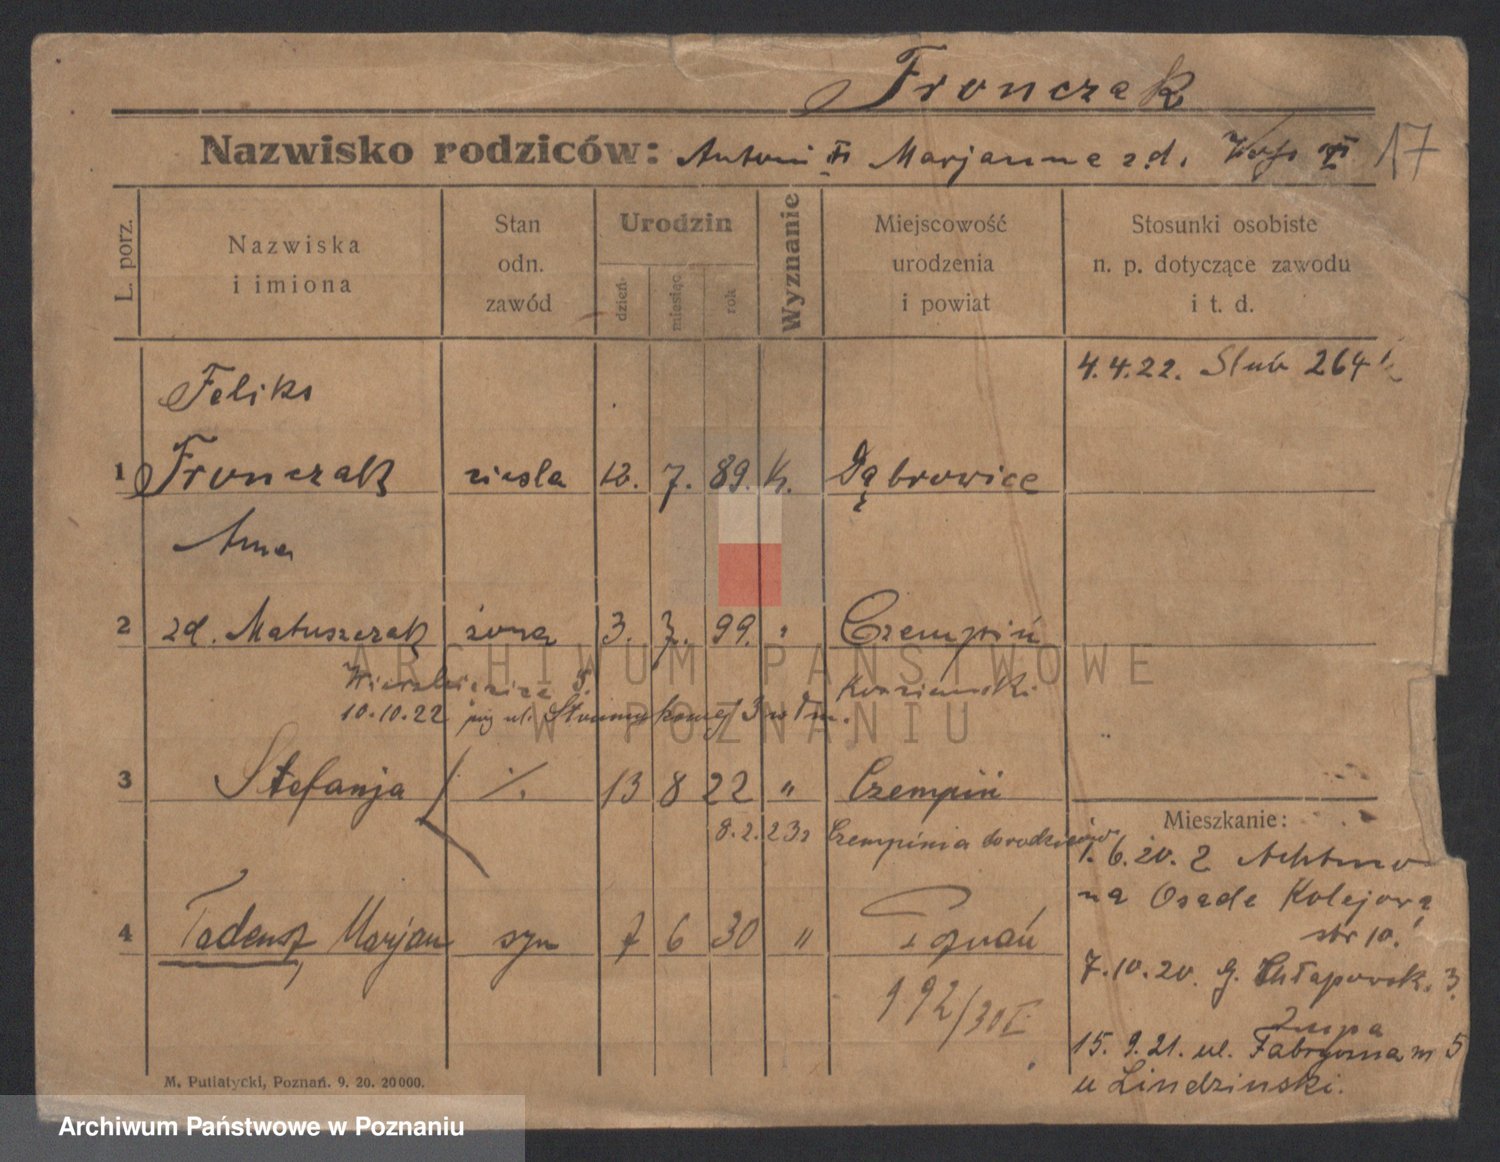 Fronczak
Nazwisko rodziców: Antoni Marjanna zd.
17
L. porz.
Nazwiska
i imiona
Stan
odn.
zawód
Urodzin
dzień
miesiąc
rok
Wyznanie
Miejscowość
urodzenia
i powiat
Stosunki osobiste
n. p. dotyczące zawodu
i t. d.
4.4.22. Slub 264
Feliks
1 Fronczak ciesla 12. 7. 89. k. Dąbrowice
Anna
2 zd. Matuszczak żona 3. 7. 99. " Czempiń
5.
10.10.22 ul. 3
3 Stefanja ·/. 13 8 22 " Czempiń
8.2.23 z Czempinia do rodziców
4 Tadeusz, Marjan syn 7 6 30 " Poznań
192/30
Mieszkanie:
1.6.20. z
na Osade Kolejową
str 10.
7.10.20. G. Chłapowsk. 3.
15.9.21. ul. Fabryczna m 5
u Lindzinski.
M. Putiatycki, Poznań. 9. 20. 20000.
ARCHIWUM PAŃSTWOWE
W POZNANIU
Archiwum Państwowe w Poznaniu